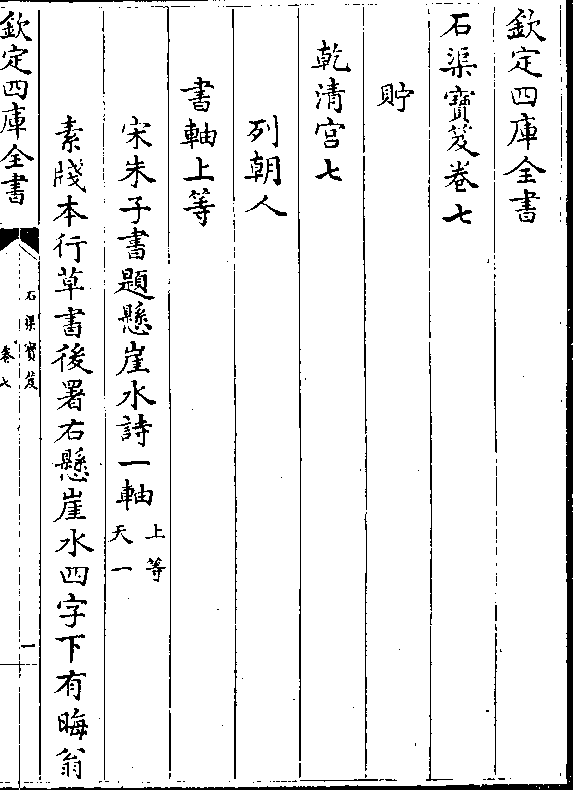 欽定四庫全書
石渠寶笈卷七
貯
乾清宮七
列朝人
書軸上等
宋朱子書題懸崖水詩一軸 上等 天一
素牋本行草書後署右懸崖水四字下有晦翁
欽定四庫全書
石渠寶笈
卷七
一